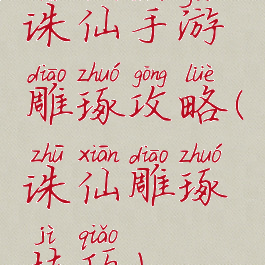 诛仙手游
diāo zhuó gōng lüè
雕琢攻略(
zhū xiān diāo zhuó
诛仙雕琢
jì qiǎo
技巧)